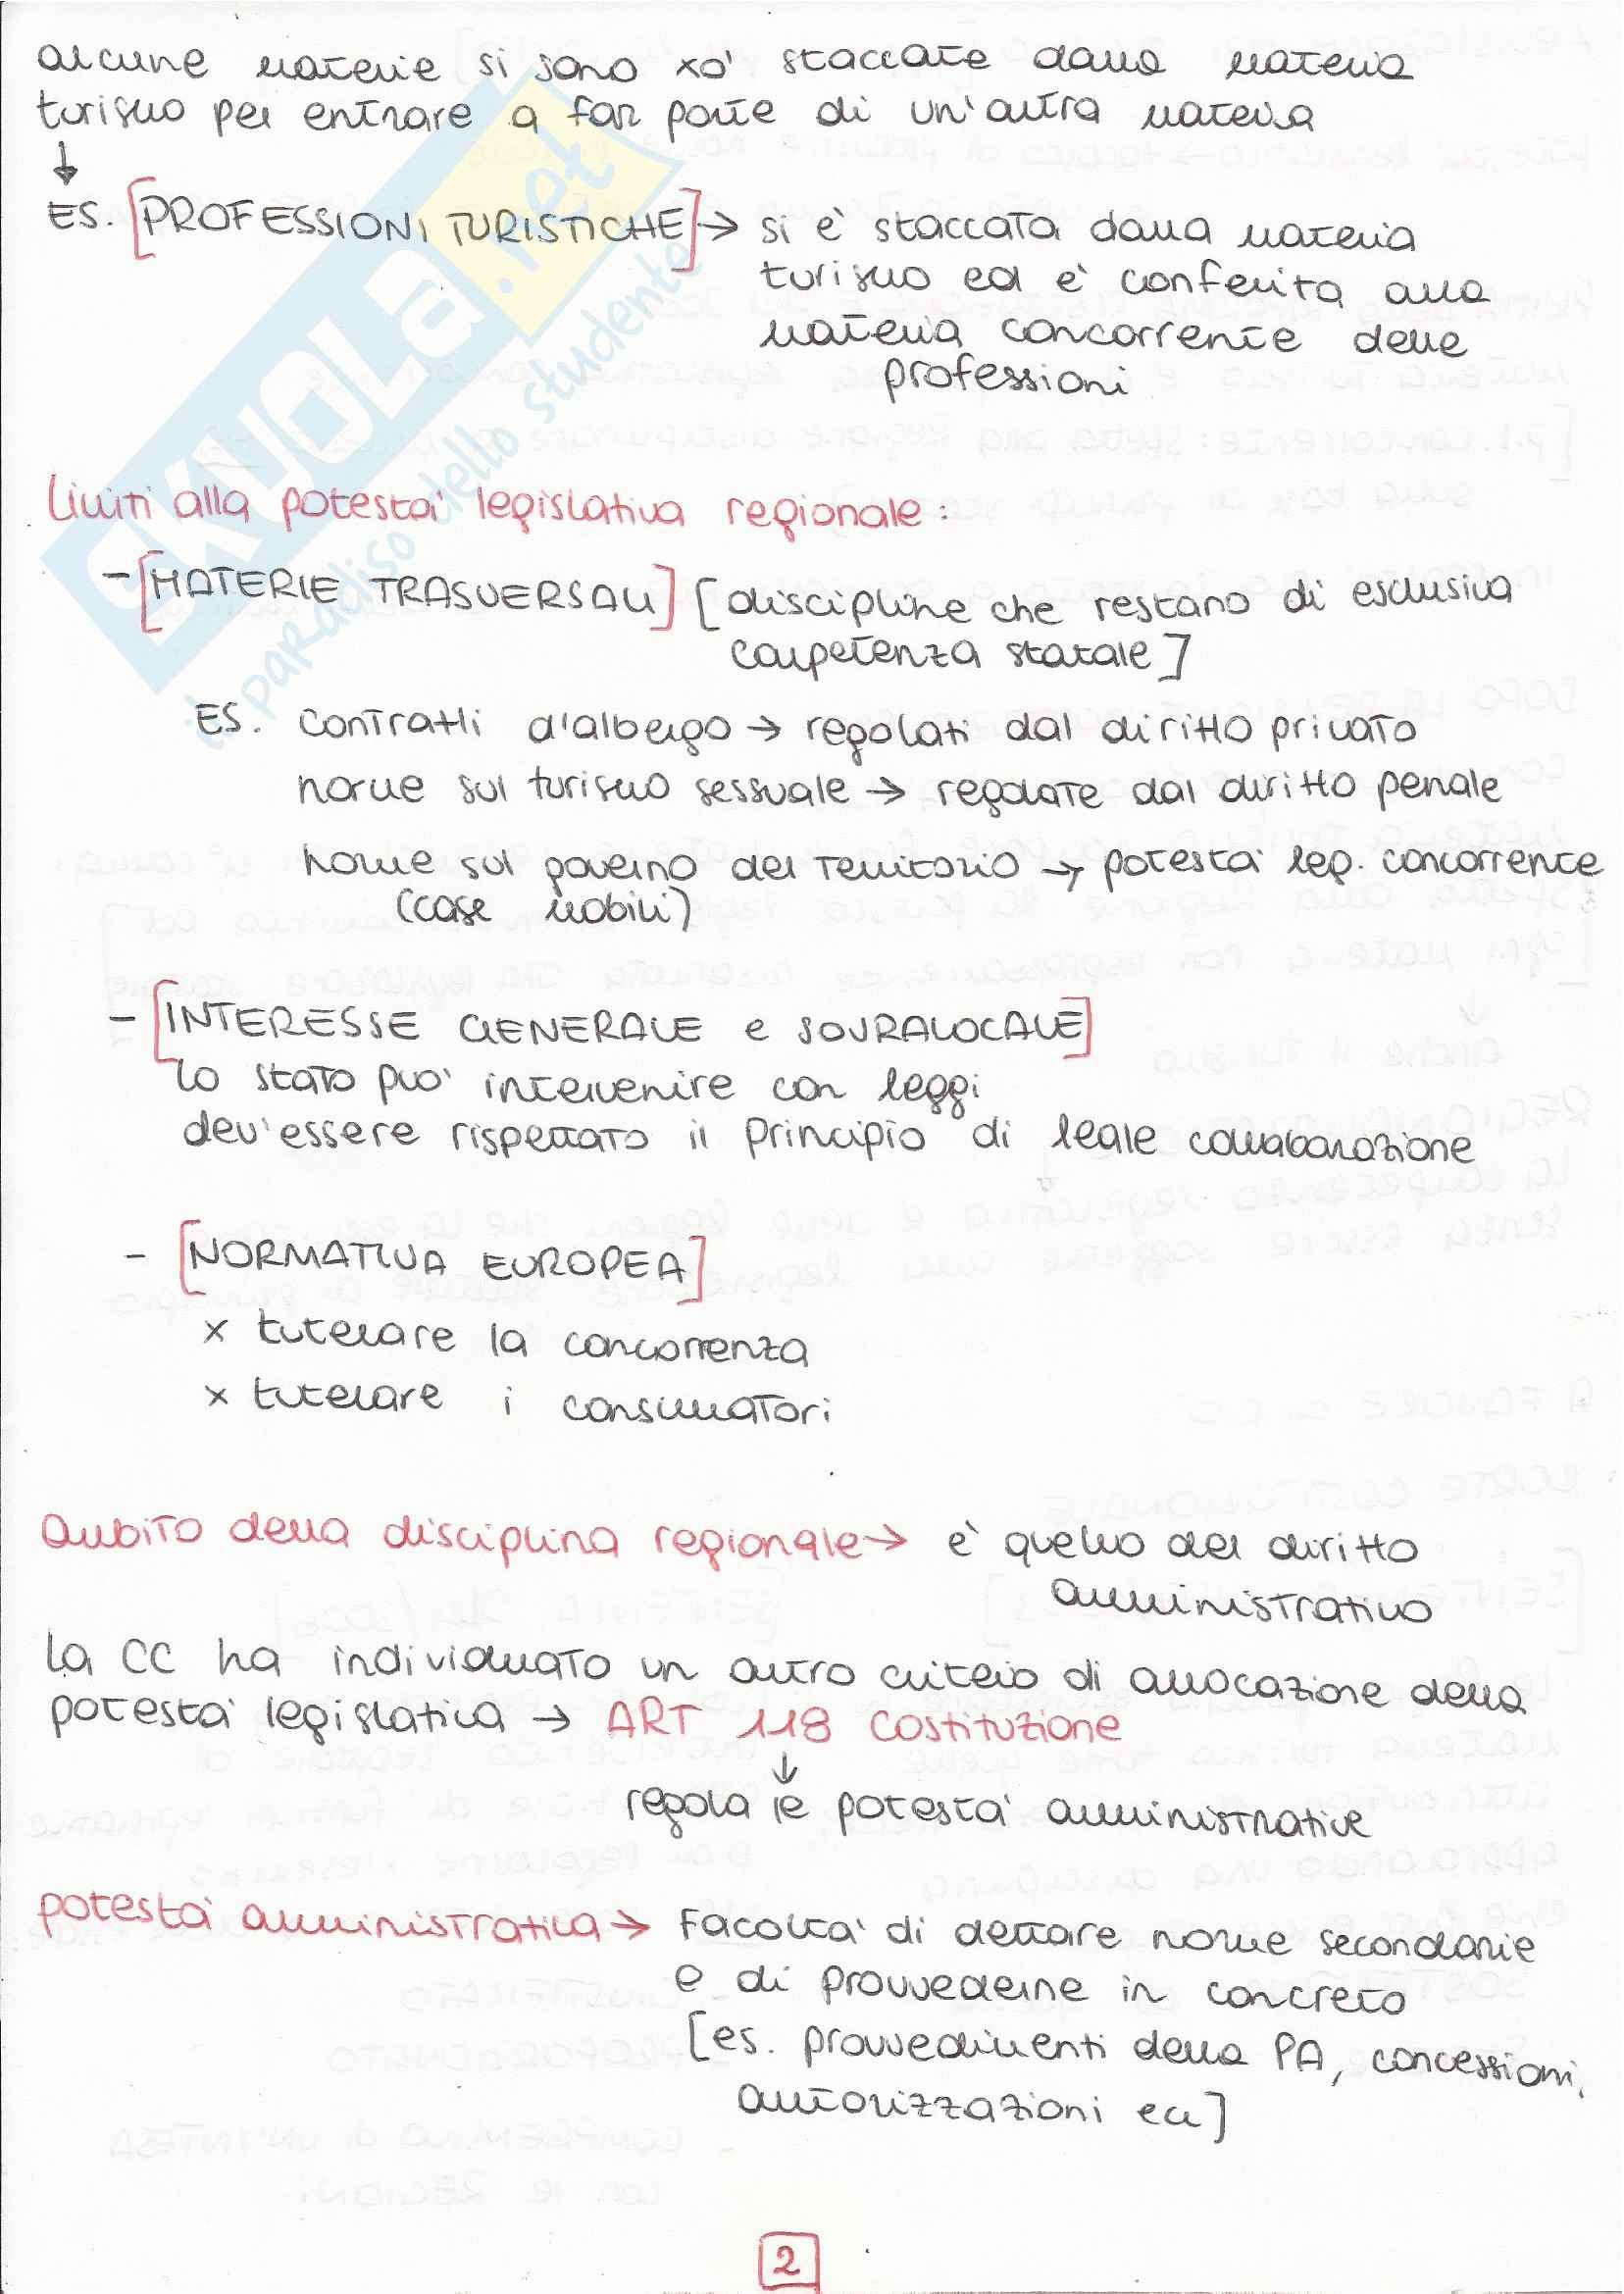 alcune materie si sono xo' staccate dalla materia
turismo per entrare a far parte di un'altra materia
↓
ES. [PROFESSIONI TURISTICHE] → si è staccata dalla materia
turismo ed è conferita alla
materia concorrente delle
professioni
SKUOLA.net
il paradiso dello studente
Limiti alla potestà legislativa regionale:
- [MATERIE TRASVERSALI] [discipline che restano di esclusiva
competenza statale]
ES. contratti d'albergo → regolati dal diritto privato
norme sul turismo sessuale → regolate dal diritto penale
norme sul governo del territorio → potestà leg. concorrente
(case mobili)
- [INTERESSE GENERALE e SOVRALOCALE]
lo stato può intervenire con leggi
dev'essere rispettato il principio di leale collaborazione
- [NORMATIVA EUROPEA]
x tutelare la concorrenza
x tutelare i consumatori
ambito della disciplina regionale → è quello del diritto
amministrativo
la CC ha individuato un altro criterio di allocazione della
potestà legislativa → ART 118 costituzione
↓
regola le potestà amministrative
potestà amministrativa → Facoltà di dettare norme secondarie
e di provvederne in concreto
[es. provvedimenti della PA, concessioni,
autorizzazioni ecc]
2